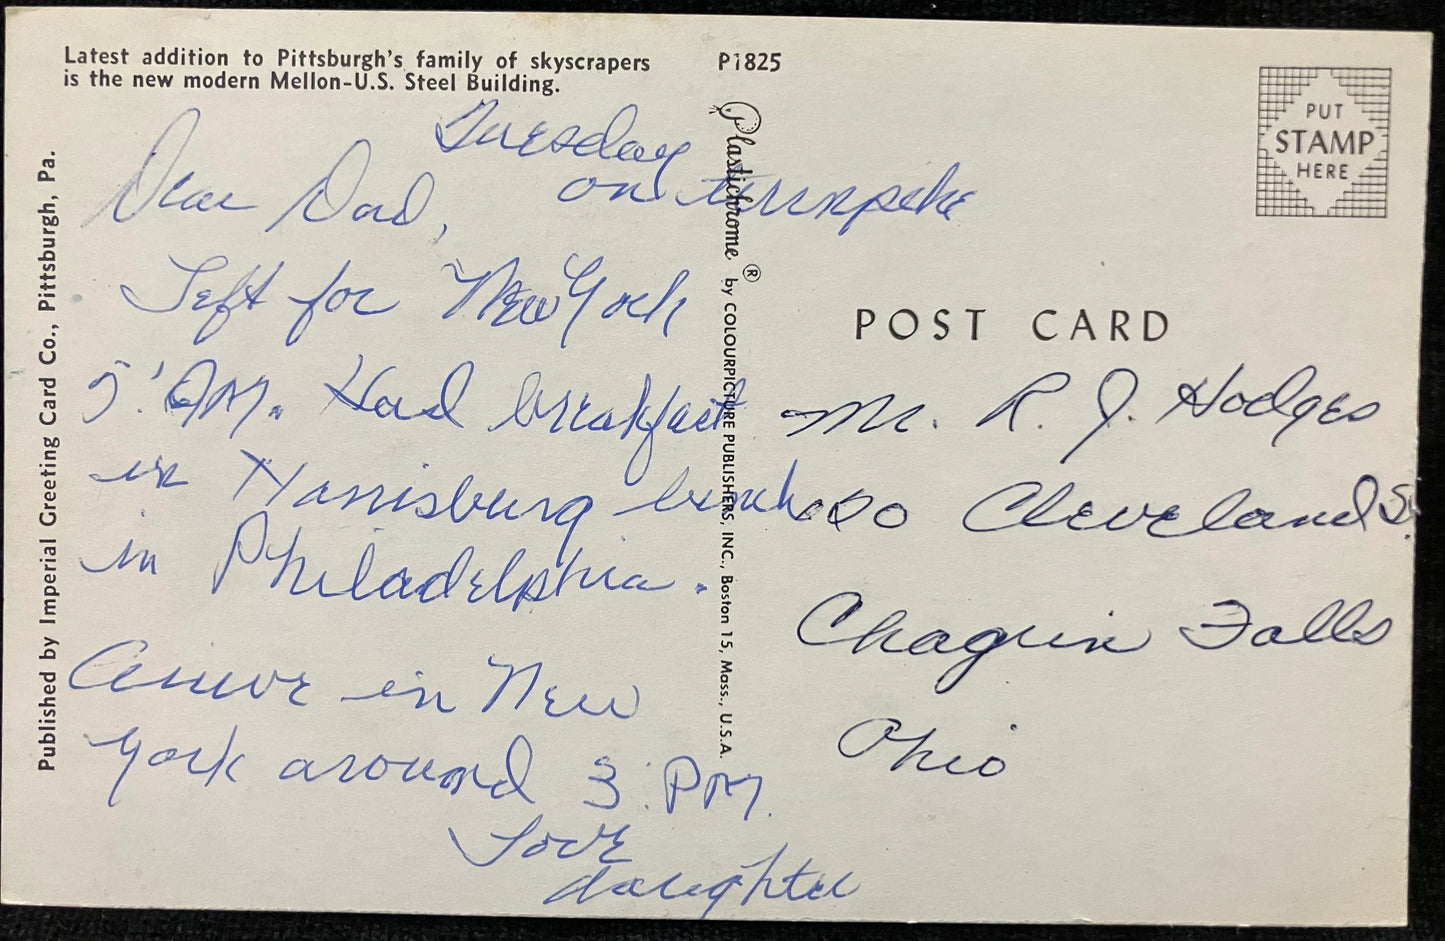 Latest addition to Pittsburgh's family of skyscrapers
is the new modern Mellon-U.S. Steel Building.
P1825
PUT
STAMP
HERE
Published by Imperial Greeting Card Co., Pittsburgh, Pa.
Plastichrome ® by COLOURPICTURE PUBLISHERS, INC., Boston 15, Mass., U.S.A.
POST CARD
Tuesday
on turnpike
Dear Dad,
Left for New York
5:AM. Had breakfast
in Harrisburg lunch
in Philadelphia.
Arrive in New
York around 3:PM.
Love
daughter
Mr. R. J. Hodges
Cleveland St.
Chagrin Falls
Ohio